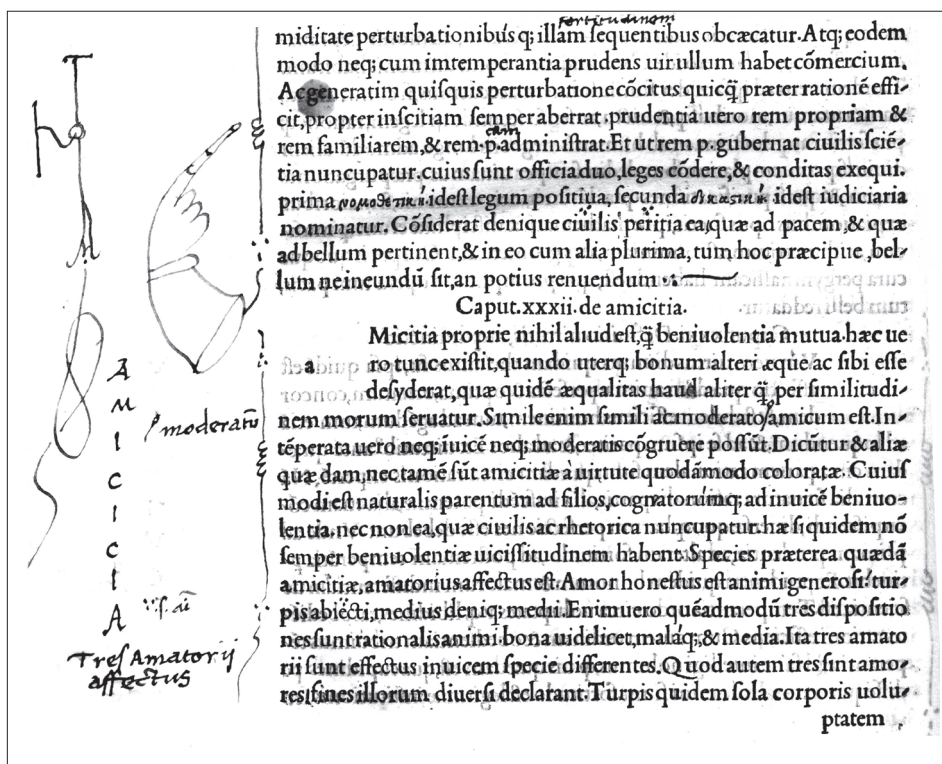 fortitudinem
miditate perturbationibus q; illam sequentibus obcæcatur. Atq; eodem
modo neq; cum imtemperantia prudens uir ullum habet cõmercium.
Ac generatim quisquis perturbatione cõcitus quicq̃ præter rationẽ effi-
cit, propter inscitiam semper aberrat. prudentia uero rem propriam &
cam
rem familiarem, & rem. p. administrat. Et ut rem p. gubernat ciuilis sciẽ-
tia nuncupatur. cuius sunt officia duo, leges cõdere, & conditas exequi.
prima νομοθετικὴ. idest legum positiua, secunda δικαστικὴ idest iudiciaria
nominatur. Cõsiderat denique ciuilis peritia ea, quæ ad pacem, & quæ
ad bellum pertinent, & in eo cum alia plurima, tum hoc præcipue, bel-
lum ne ineundũ sit, an potius renuendum
Caput. xxxii. de amicitia.
Micitia proprie nihil aliud est, q̃ beniuolentia mutua. hæc ue
a ro tunc existit, quando uterq; bonum alteri æque ac sibi esse
desyderat, quæ quidẽ æqualitas haud aliter q̃, per similitudi-
nem morum seruatur. Simile enim simili ac moderato amicum est. In-
moderatũ
tẽperata uero neq; iuicẽ neq; moderatis cõgruere possũt. Dicũtur & aliæ
quæ dam, nec tamẽ sũt amicitiæ à uirtute quodãmodo coloratæ. Cuius
modi est naturalis parentum ad filios, cognatorũmq; ad inuicẽ beniuo-
lentia. nec non ea, quæ ciuilis ac rhetorica nuncupatur. hæ siquidem nõ
semper beniuolentiæ uicissitudinem habent. Species præterea quædã
amicitiæ, amatorius affectus est. Amor honestus est animi generosi: tur-
pis abiecti, medius deniq; medii. Enimuero quẽadmodũ tres dispositio
nes sunt rationalis animi. bona uidelicet, malaq;, & media. Ita tres amato
rii sunt effectus inuicem specie differentes. Quod autem tres sint amo-
res, fines illorum diuersi declarant. Turpis quidem sola corporis uolu-
ptatem
A
M
I
C
I
C
I
A
Tres Amatorij
affectus